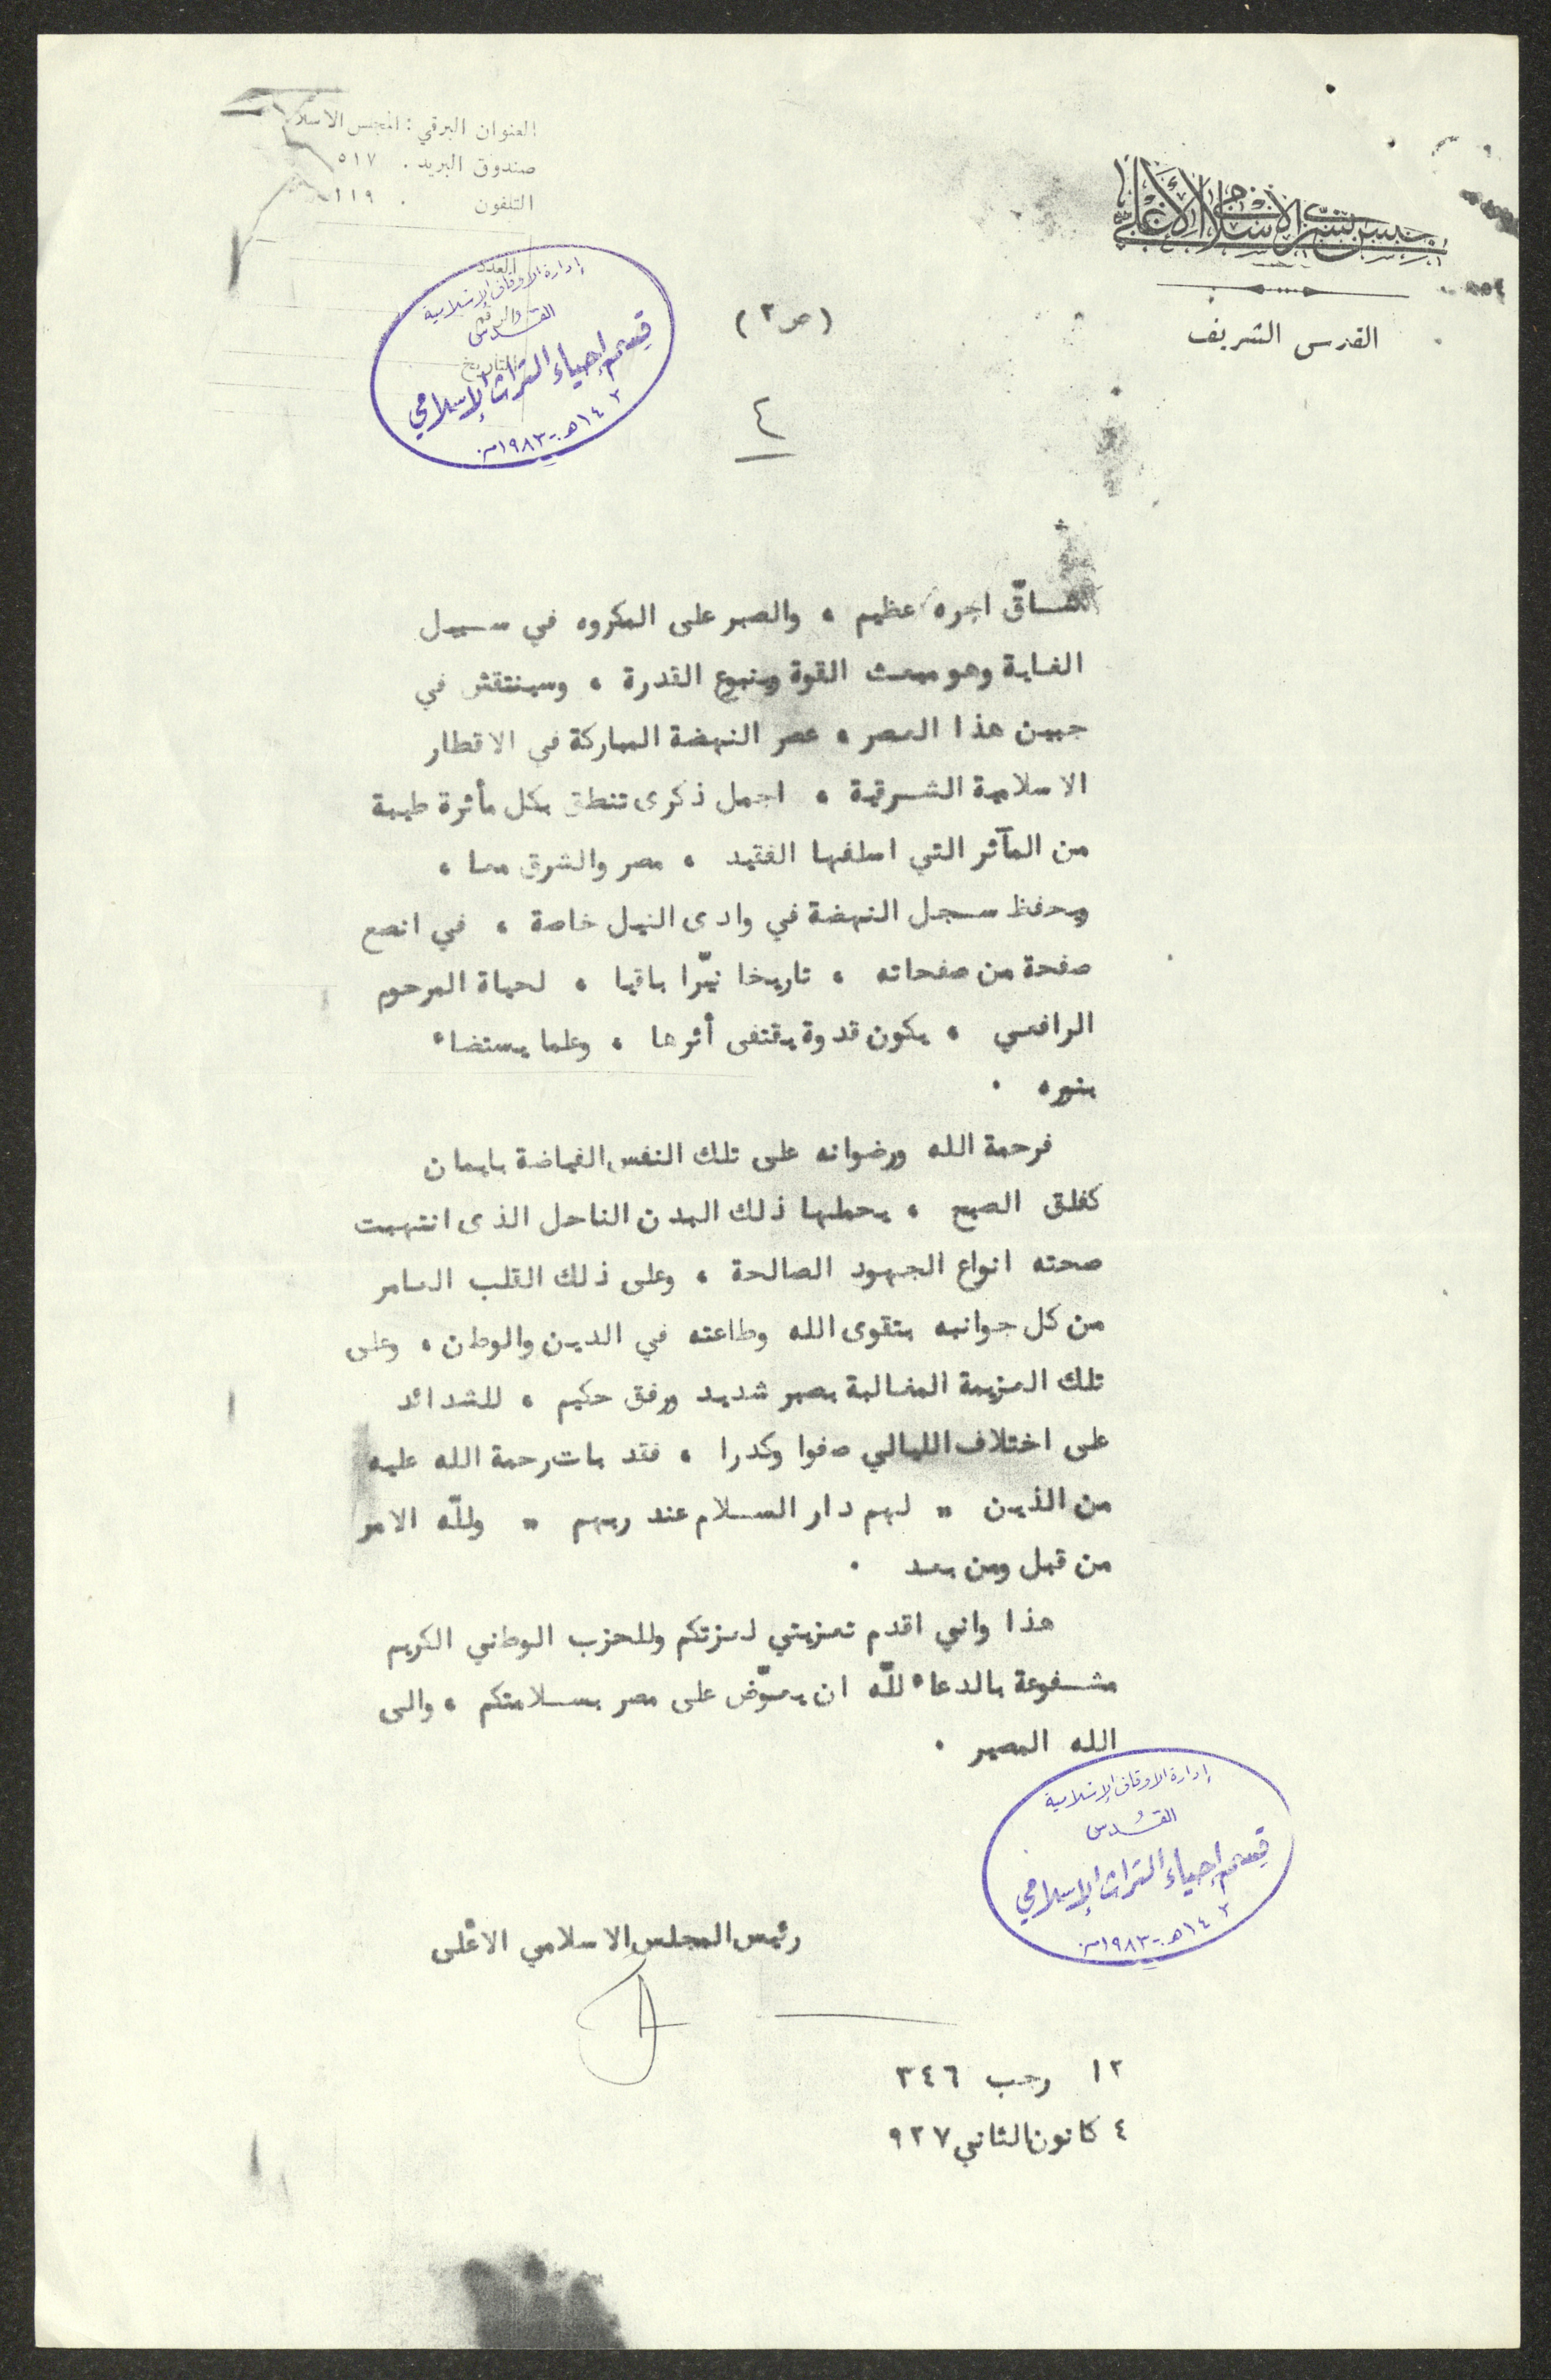 المجلس الشرعي الاسلامي الأعلى
القدس الشريف
العنوان البرقي : المجلس الاسلا
صندوق البريد . ٥١٧
التلفون . ١١٩
العدد
والرقم
التاريخ
إدارة الاوقاف الإسلامية
القدس
قسم إحياء التراث الإسلامي
١٤٠٣هـ - ١٩٨٣م
(ص٢)
٤
شاقّ اجره عظيم ، والصبر على المكروه في سبيل
الغاية وهو مبعث القوة وينبوع القدرة ، وسينتقش في
جبين هذا العصر ، عصر النهضة المباركة في الاقطار
الاسلامية الشرقية ، اجمل ذكرى تنطق بكل مأثرة طيبة
من المآثر التي اسلفها الفقيد ، مصر والشرق معا ،
ويحفظ سجل النهضة في وادى النيل خاصة ، في انصع
صفحة من صفحاته ، تاريخا نيّرا باقيا ، لحياة المرحوم
الرافعي ، يكون قدوة يقتفى أثرها ، وعلما يستضاء
بنوره .
فرحمة الله ورضوانه على تلك النفس الفياضة بايمان
كفلق الصبح ، يحملها ذلك البدن الناحل الذى انتهبت
صحته انواع الجهود الصالحة ، وعلى ذلك القلب العامر
من كل جوانبه بتقوى الله وطاعته في الدين والوطن ، وعلى
تلك العزيمة المغالبة بصبر شديد ورفق حكيم ، للشدائد
على اختلاف الليالي صفوا وكدرا ، فقد بات رحمة الله عليه
من الذين " لهم دار السلام عند ربهم " ولله الامر
من قبل ومن بعد .
هذا واني اقدم تعزيتي لعزتكم وللحزب الوطني الكريم
مشفوعة بالدعاء لله ان يعوّض على مصر بسلامتكم ، والى
الله المصير .
إدارة الاوقاف الإسلامية
القدس
قسم إحياء التراث الإسلامي
١٤٠٣هـ - ١٩٨٣م
رئيس المجلس الاسلامي الاعلى
١٢ رجب ٣٤٦
٤ كانون الثاني ٩٢٧